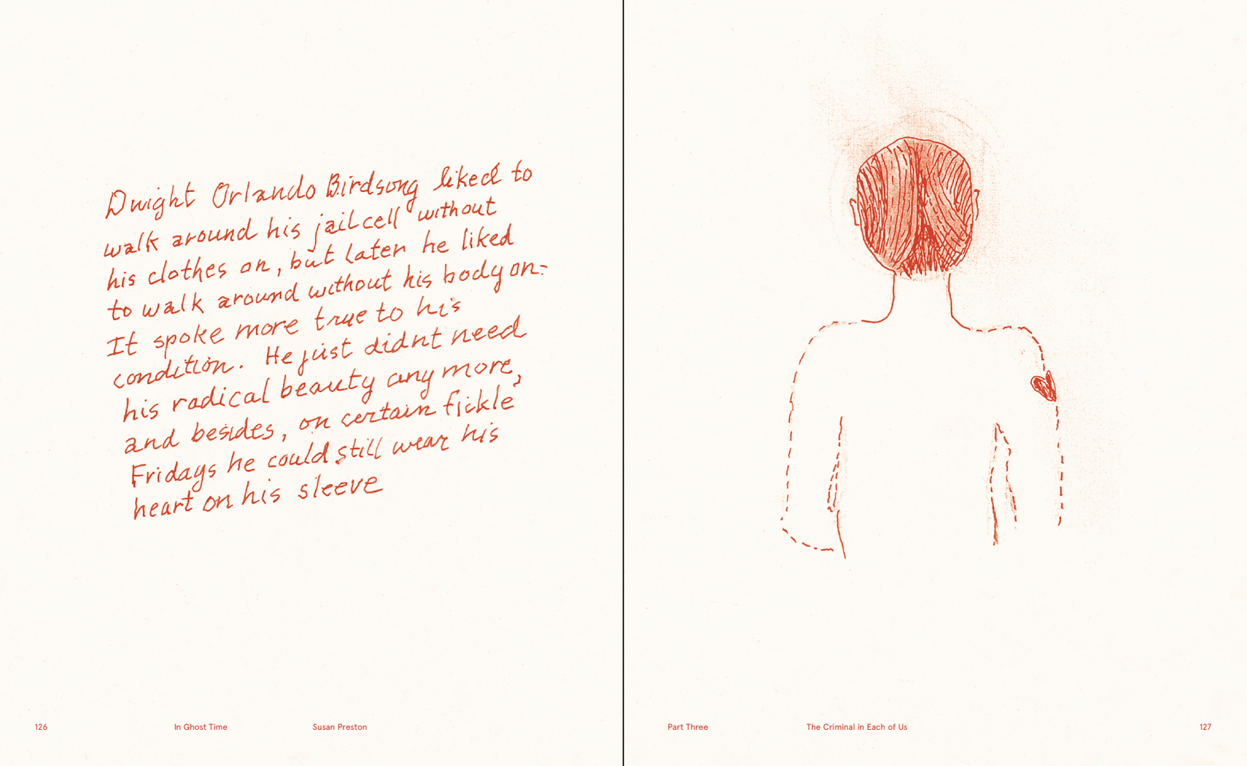 Dwight Orlando Birdsong liked to
walk around his jailcell without
his clothes on, but later he liked
to walk around without his body on-
It spoke more true to his
condition. He just didnt need
his radical beauty any more,
and besides, on certain fickle
Fridays he could still wear his
heart on his sleeve
126 In Ghost Time Susan Preston
Part Three The Criminal in Each of Us 127